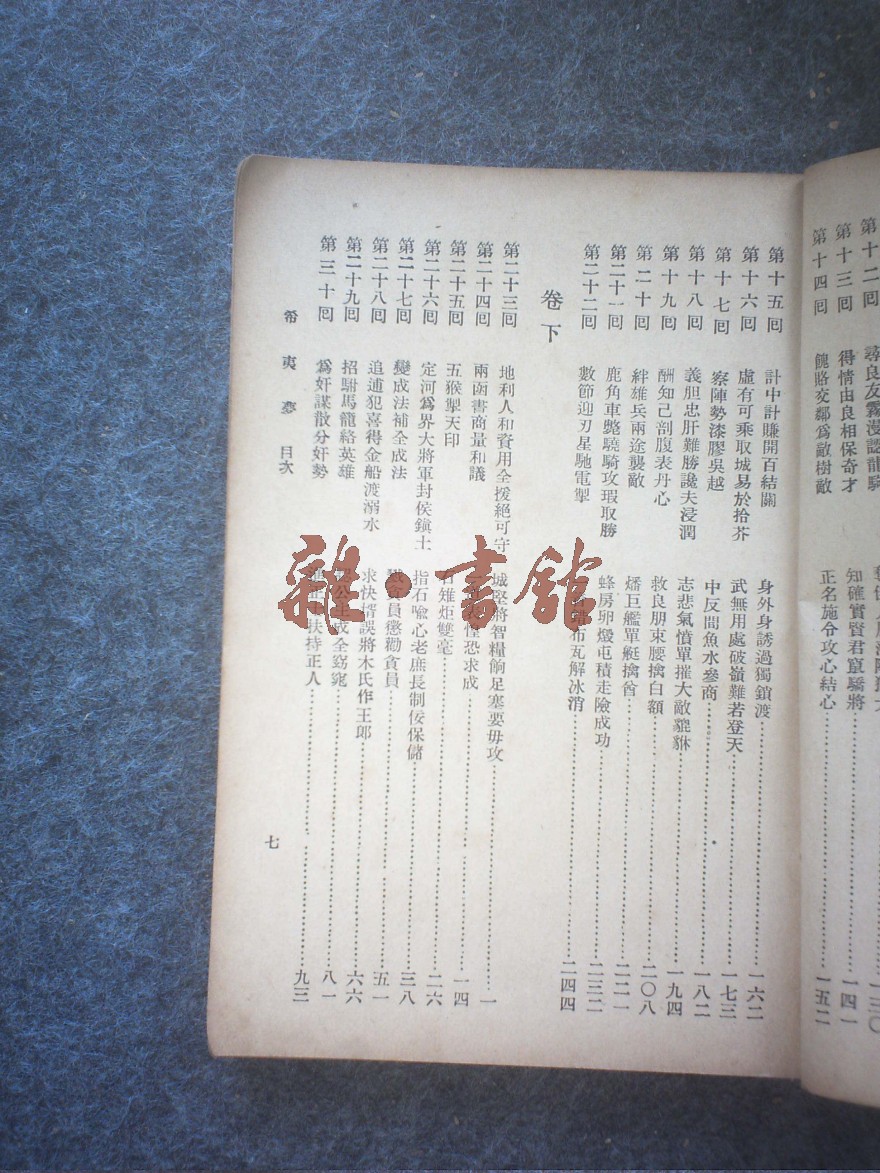 第十二回 尋良友霧漫認龍騎 一三〇
第十三回 得情由良相保奇才 知確實賢君竄驕將 一四一
第十四回 餽賂交鄰為敵樹敵 正名施令攻心結心 一五二
第十五回 計中計賺開百結關 身外身誘過獨鎖渡 一六二
第十六回 虛有可乘取城易於拾芥 武無用處破嶺難若登天 一七三
第十七回 察陣勢漆膠吳越 中反間魚水參商 一八二
第十八回 義胆忠肝難勝讒夫浸潤 志悲氣憤單摧大敵貔貅 一九四
第十九回 酬知己剖腹表丹心 救良朋束腰擒白額 二〇八
第二十回 絆雄兵兩途襲敵 燔巨艦單艇擒酋 二二一
第二十一回 鹿角車斃驍騎攻瑕取勝 蜂房卵燬屯積走險成功 二三二
第二十二回 數節迎刃星馳電掣 布瓦解冰消 二四四
卷下
第二十三回 地利人和資用全援絕可守 城堅將智糧餉足塞要毋攻 一
第二十四回 兩函書商量和議 惶恐求成 一四
第二十五回 五猴掣天印 雉炬雙毫 二六
第二十六回 定河為界大將軍封侯鎮土 指石喩心老庶長制佞保儲 三八
第二十七回 變成法補全成法 貪員懲勸貪員 五一
第二十八回 追逋犯喜得金船渡溺水 求快壻誤將木氏作王郎 六六
第二十九回 招駙馬籠絡英雄 公主成全窈窕 八一
第三十回 為奸謀散分奸勢 正士扶持正人 九三
希夷夢 目次
七
雜·書館